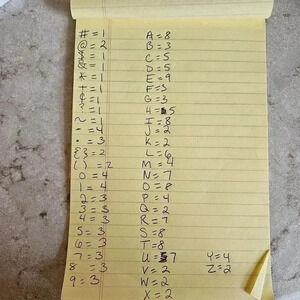 # = 1
@ = 2
& = 1
* = 1
+ = 1
= 1
~ = 1
- = 4
• = 3
{ } = 2
( ) = 2
0 = 4
1 = 4
2 = 3
3 = 3
4 = 3
5 = 3
6 = 3
7 = 3
8 = 3
9 = 3
A = 8
B = 3
C = 5
D = 5
E = 9
F = 3
G = 3
H = 5
I = 8
J = 2
K = 2
L = 6
M = 4
N = 7
O = 8
P = 4
Q = 2
R = 7
S = 8
T = 8
U = 7
V = 2
W = 2
X = 2
Y = 4
Z = 2